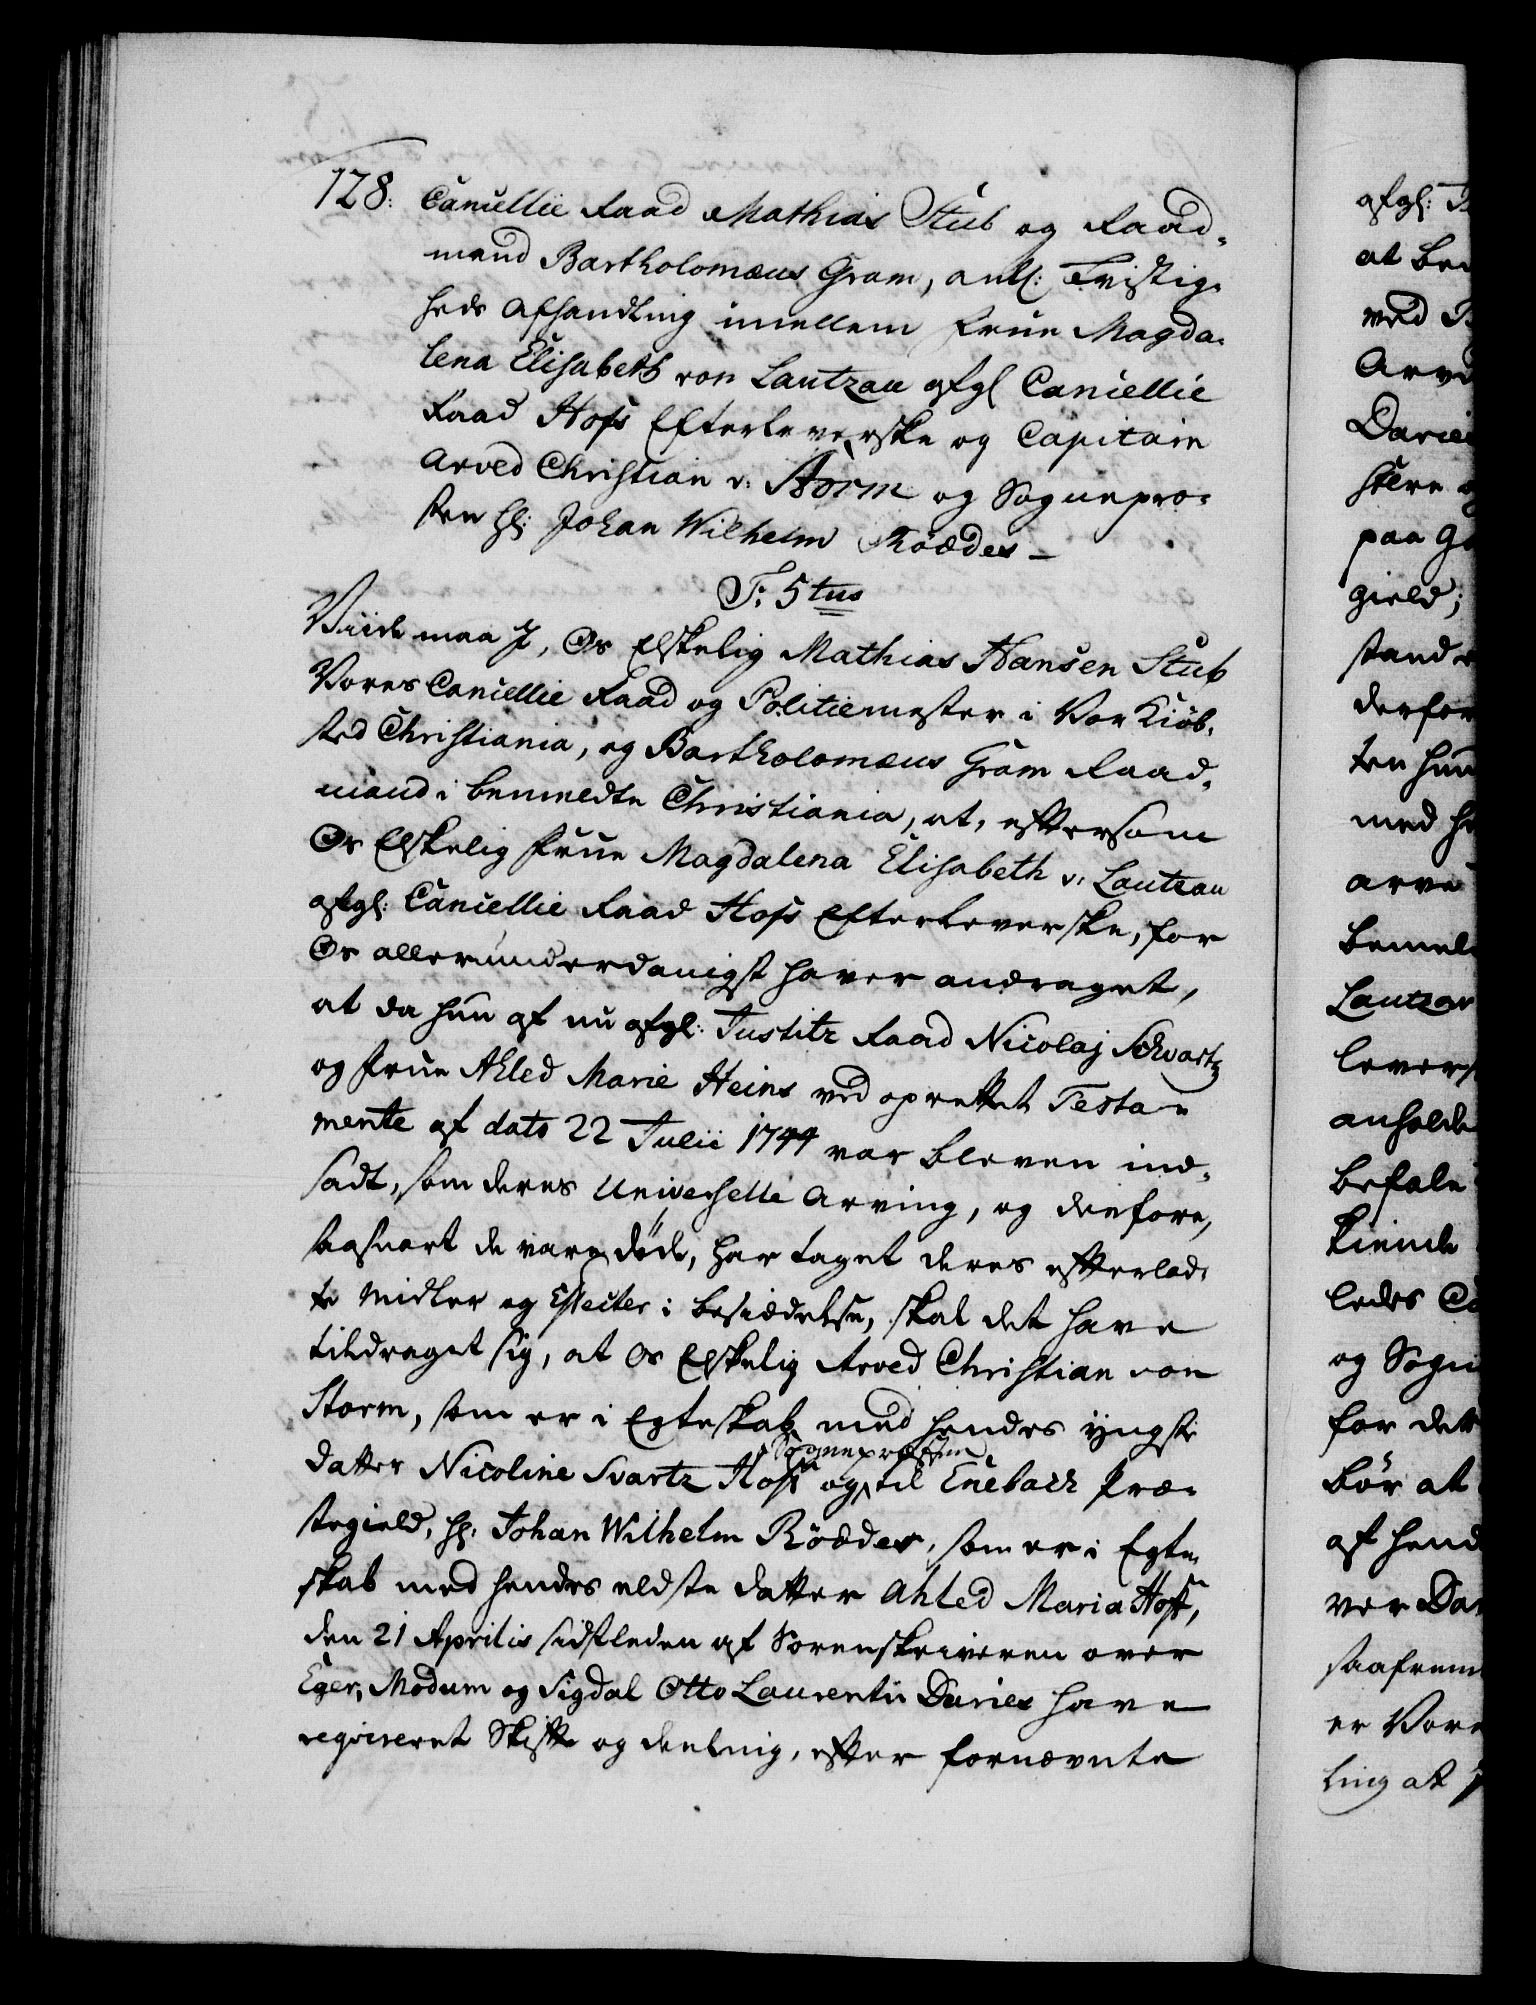 128. Cancellie Raad Mathias Stub og Raad-
mand Bartholomæus Gram, anl: Tvistig-
heds Afhandling imellem Frue Magda-
lena Elisabeth von Lautzau afgl Cancellie
Raad Hofs Efterleverske og Capitain
Arved Christian v: Storm og Sognepræ-
sten Hr: Johan Wilhelm Röædes
F: 5tus
Viide maa I, Os Elskelig Mathias Hansen Stub
Vores Cancellie Raad og Politiemester i Vor Kiöb-
sted Christiania, og Bartholomæus Gram Raad-
mand i bemeldte Christiania, at, eftersom
Os Elskelig Frue Magdalena Elisabeth v: Lautzau
afgl: Cancellie Raad Hofs Efterleverske, for
Os allerunderdanigst haver andraget,
at da hun af nu afgl: Justitz Raad Nicolaj Schvartz
og Frue Ahled Marie Heins ved oprettet Testa-
mente af dato 22 Julii 1744 var bleven ind-
sadt, som deres Universelle Arving, og derfore,
saasnart de vare döde, har taget deres efterlad-
te Midler og Effecter i besiddelse, skal det have
tildraget sig, at Os Elskelig Arved Christian von
Storm, som er i Egteskab med hendes yngste
Sognepræsten
Datter Nicoline Svartz Hofs og til Enebach Præ-
stegield, Hr: Johan Wilhelm Röædes, som er i Egte-
skab med hendes eldste Datter Ahled Maria Hofs,
den 21 Aprilis sidstleden af Sorenskriveren over
Eger, Modum og Sigdal Otto Laurentii Daries have
reqvireret Skifte og deeling, efter fornævnte
afgl:
at be
ved
Arved
Daries
paa
gield;
stand
derfor
ten hun
med
arve
bemel
Lautzau
levers
anholde
befale
kiende
ledes
og Sogn
for det
bör at
af hend
ver Dar
saafrem
er Vore
ling at